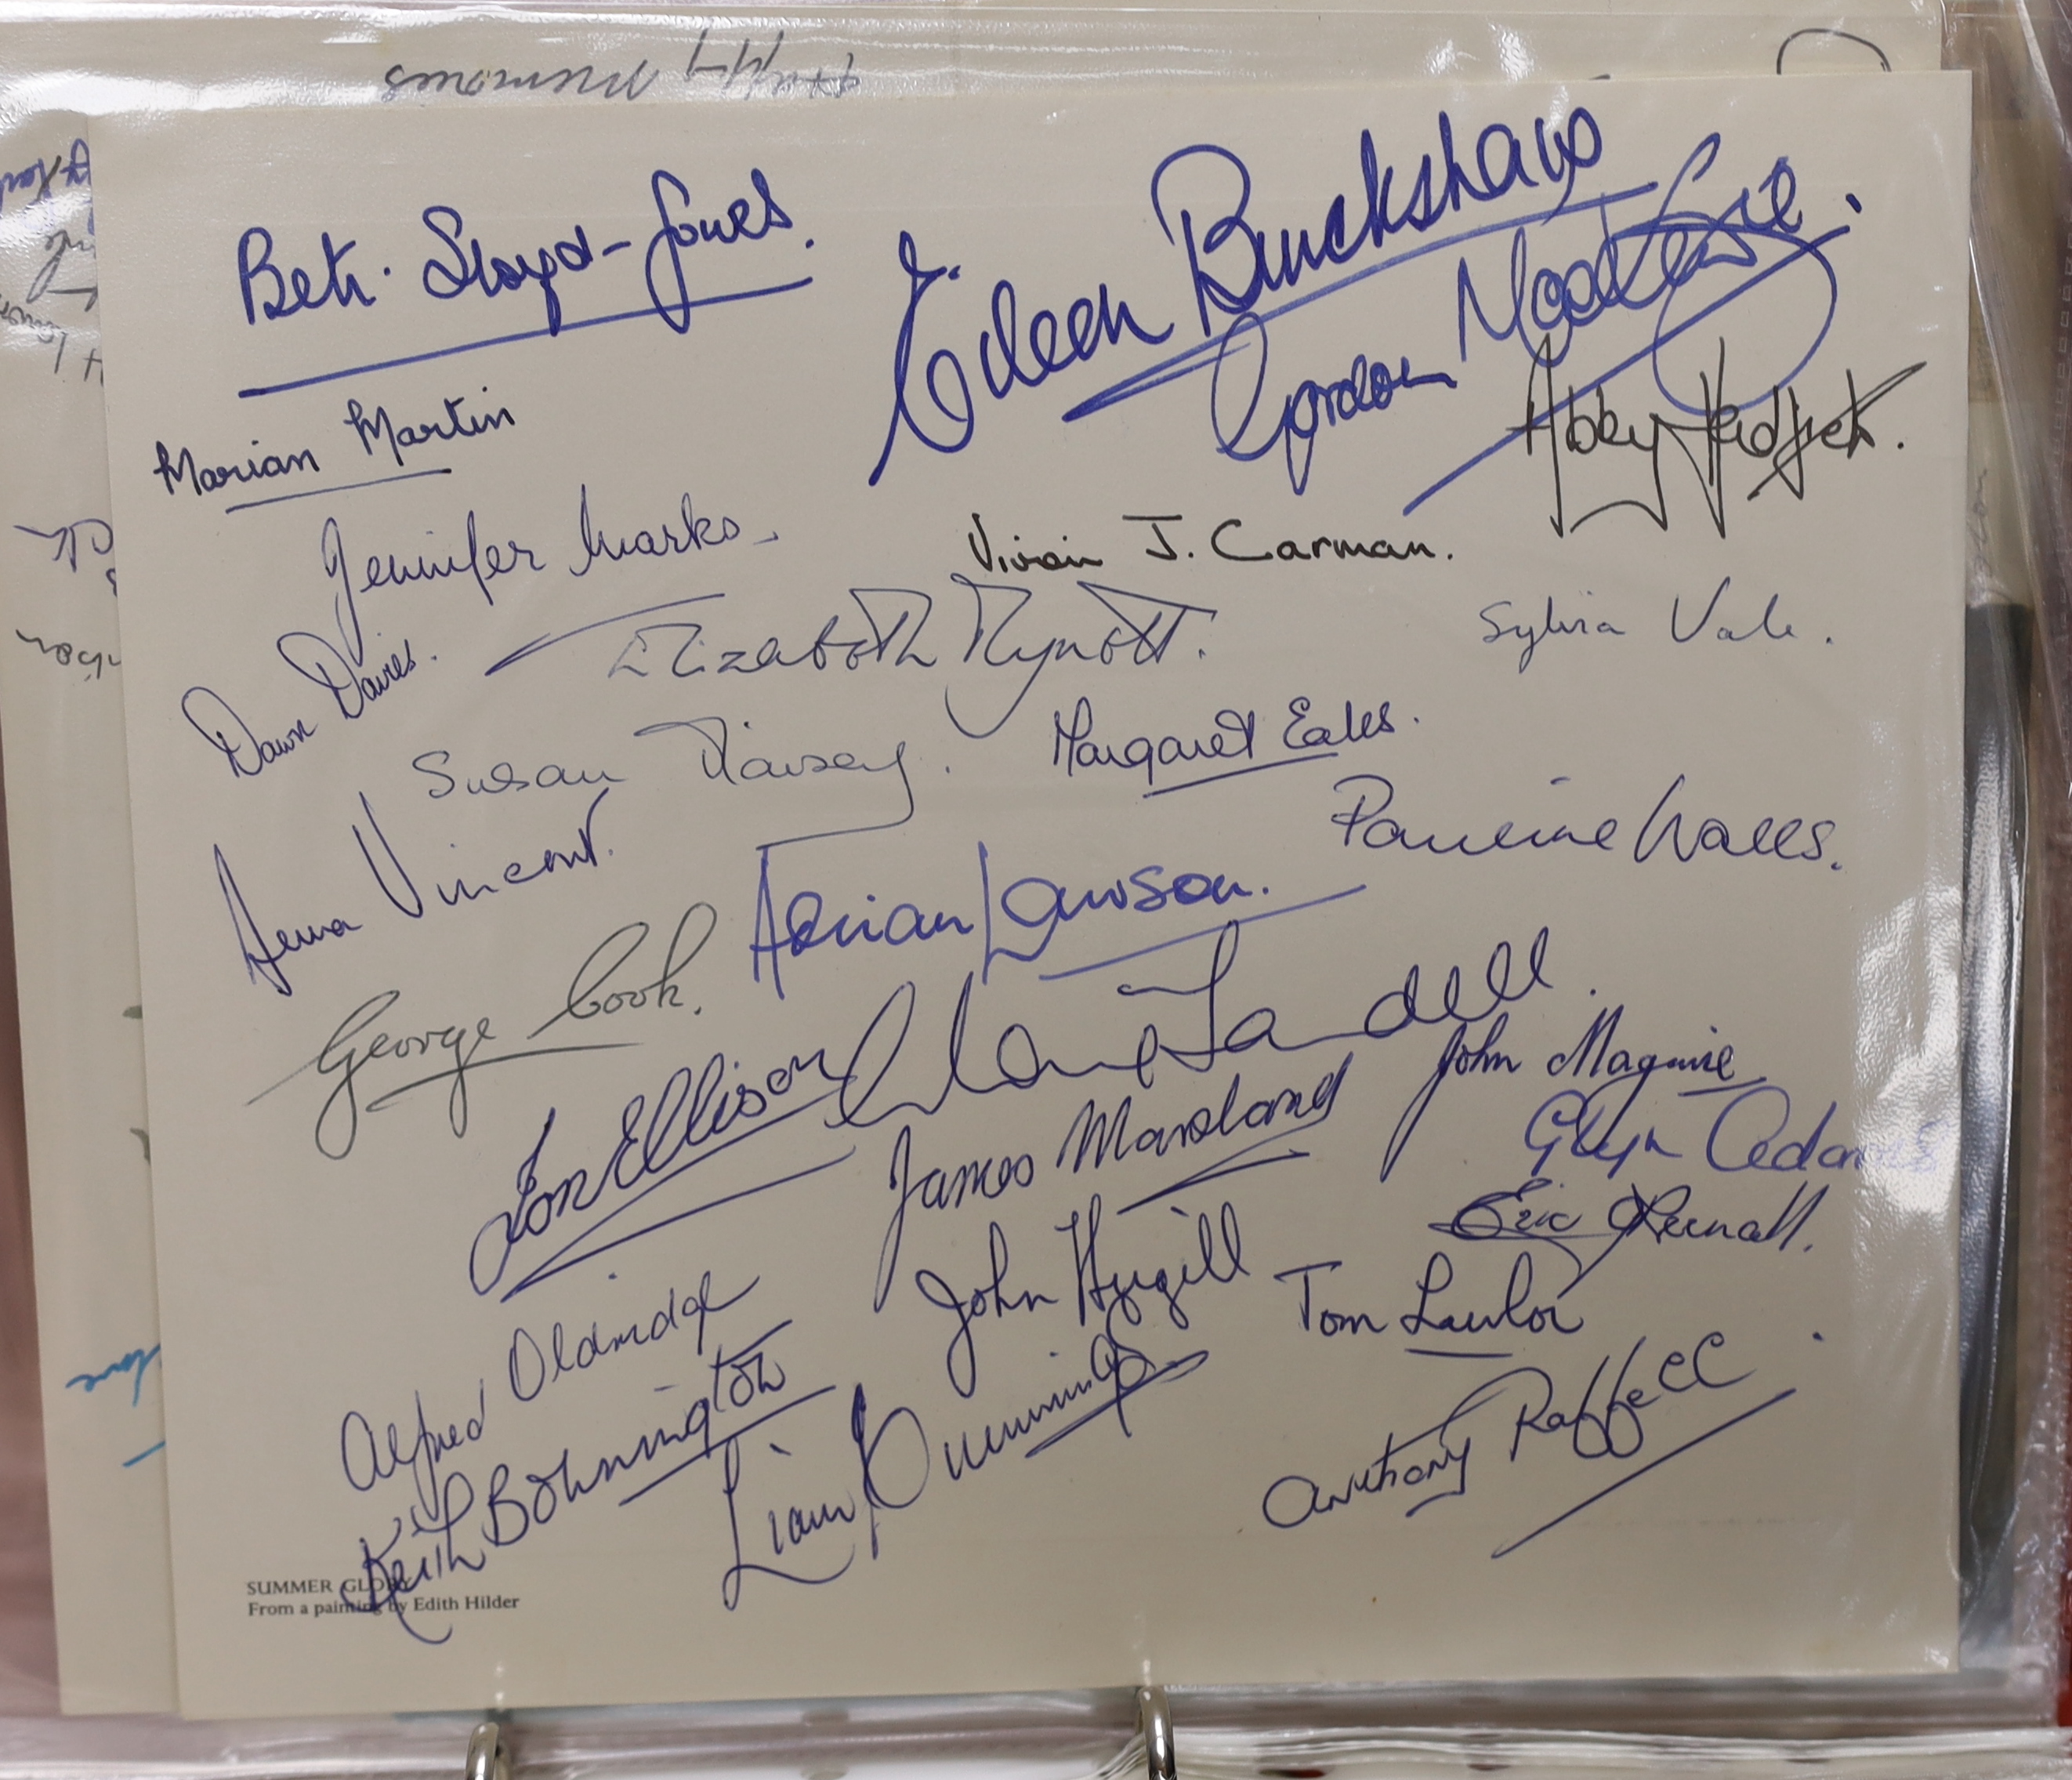 Happy Memories
Beti Lloyd-Jones.
Eileen Buckshaw
Gordon
Marian Martin
Abby
Jennifer Marks
Vivian J. Carman.
Elizabeth Tynott.
Sylvia Vale.
Dawn Davies.
Susan
Margaret Eales.
Anna Vincent.
Pauline Wales.
Adrian Lawson.
George Cook.
Alan Landell.
Jon Ellison
John Maguire
James Marsland
Glyn Adams
Eric
John Hugill
Tom Lawlor
Alfred Oldridge
Keith Bonnington
Liam Cummings
Anthony Raffell
SUMMER GLORY
From a painting by Edith Hilder